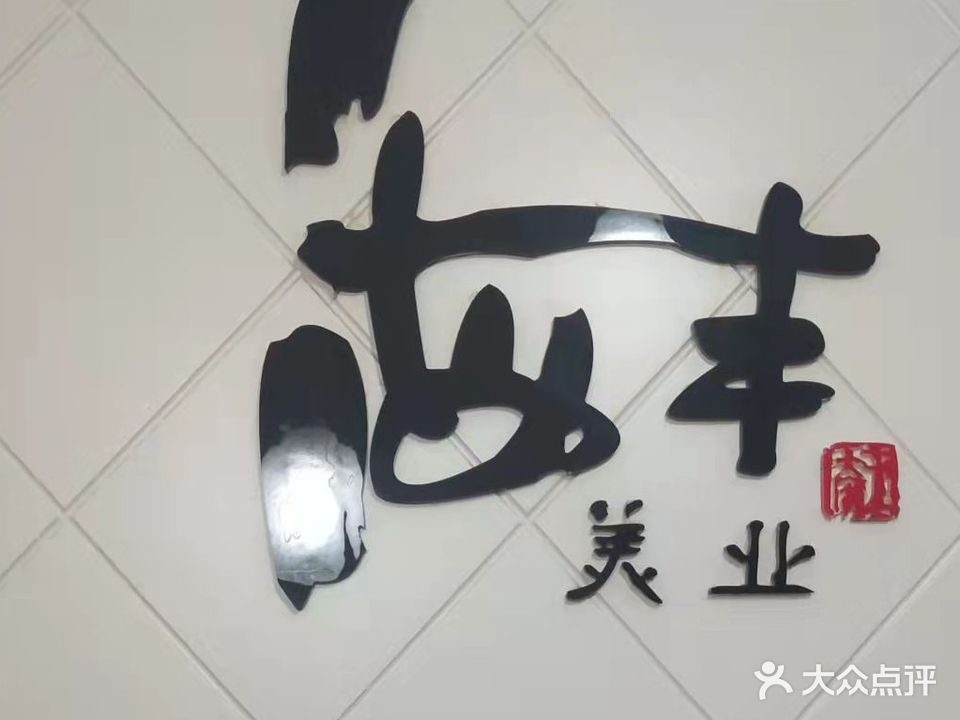 海丰
美业
大众点评